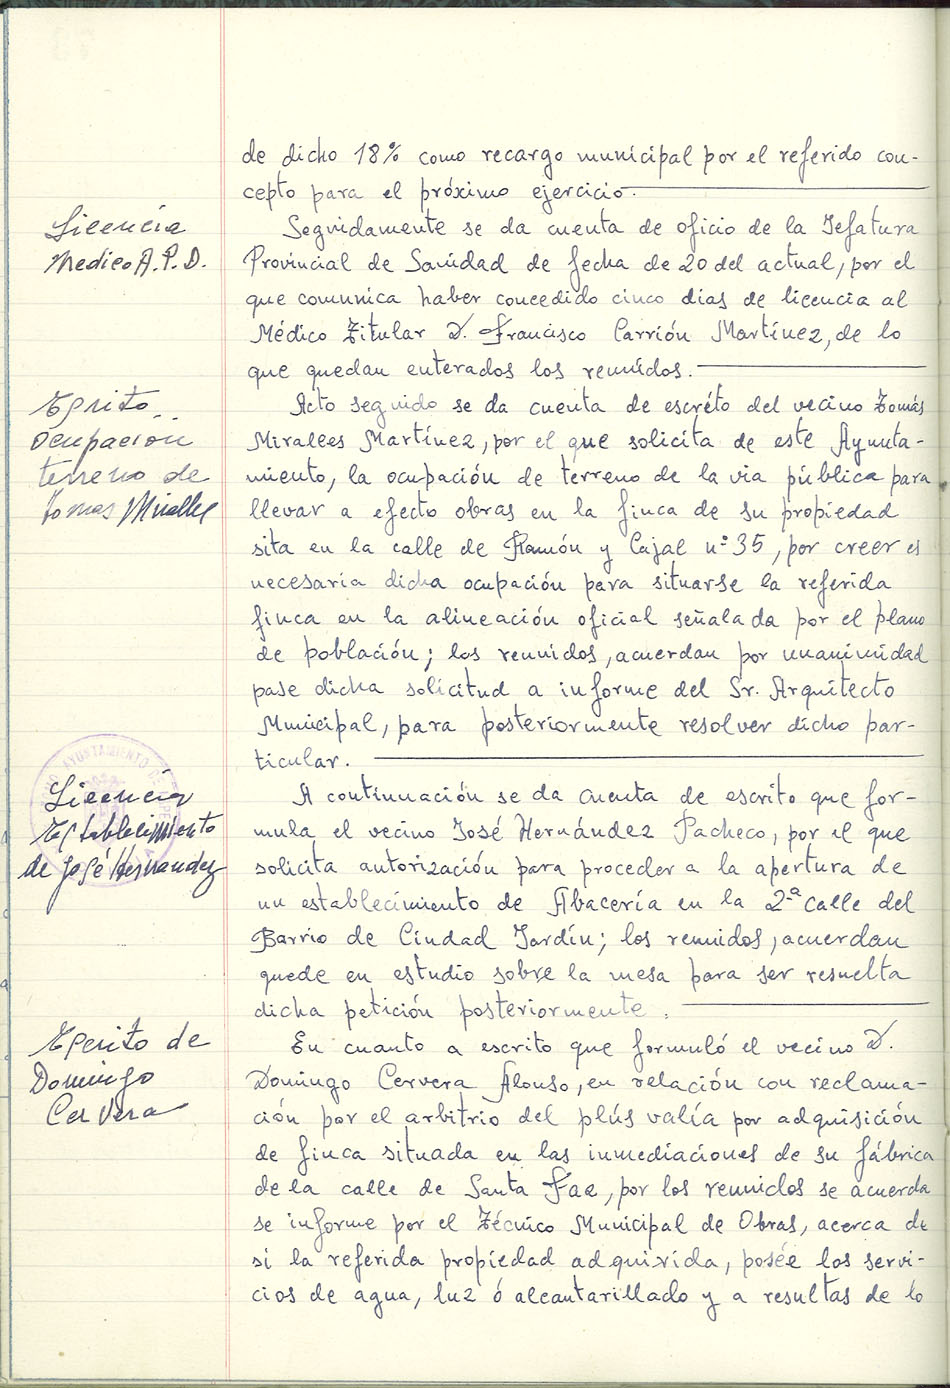 de dicho 18% como recargo municipal por el referido con-
cepto para el próximo ejercicio.
Licencia
Medico A.P.D.
Seguidamente se da cuenta de oficio de la Jefatura
Provincial de Sanidad de fecha de 20 del actual, por el
que comunica haber concedido cinco dias de licencia al
Médico Titular D. Francisco Carrión Martínez, de lo
que quedan enterados los reunidos.
Escrito
ocupación
terreno de
Tomas Miralles
Acto seguido se da cuenta de escrito del vecino Tomás
Miralles Martínez, por el que solicita de este Ayunta-
miento, la ocupación de terreno de la via pública para
llevar a efecto obras en la finca de su propiedad
sita en la calle de Ramón y Cajal nº 35, por creer es
necesaria dicha ocupación para situarse la referida
finca en la alineación oficial señalada por el plano
de población; los reunidos, acuerdan por unanimidad
pase dicha solicitud a informe del Sr. Arquitecto
Municipal, para posteriormente resolver dicho par-
ticular.
AYUNTAMIENTO DE
Licencia
Establecimiento
de José Hernandez
A continuación se da cuenta de escrito que for-
mula el vecino José Hernández Pacheco, por el que
solicita autorización para proceder a la apertura de
un establecimiento de Abacería en la 2ª calle del
Barrio de Ciudad Jardín; los reunidos, acuerdan
quede en estudio sobre la mesa para ser resuelta
dicha petición posteriormente.
Escrito de
Domingo
Cervera
En cuanto a escrito que formuló el vecino D.
Domingo Cervera Alonso, en relación con reclama-
ción por el arbitrio del plús valía por adquisición
de finca situada en las inmediaciones de su fábrica
de la calle de Santa Faz, por los reunidos se acuerda
se informe por el Técnico Municipal de Obras, acerca de
si la referida propiedad adquirida, posée los servi-
cios de agua, luz ó alcantarillado y a resultas de lo